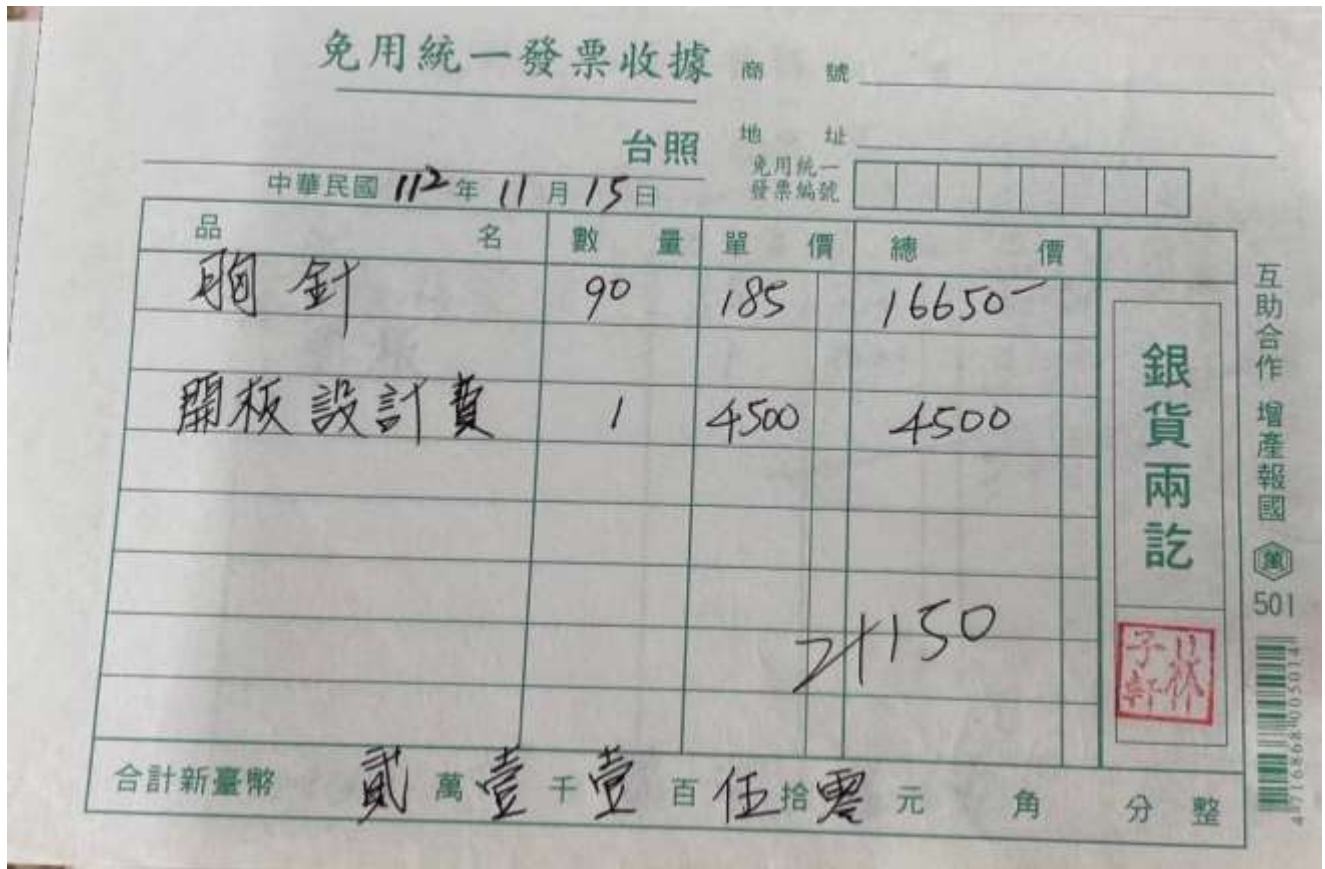 免用統一發票收據
商號
台照
地址
免用統一
發票編號
中華民國 112 年 11 月 15 日
品名 數量 單價 總價
胸針 90 185 16650-
開板設計費 1 4500 4500
21150
合計新臺幣 貳萬壹千壹百伍拾零元 角 分 整
銀貨兩訖
林子軒
互助合作 增產報國 萬 501
4716868005014